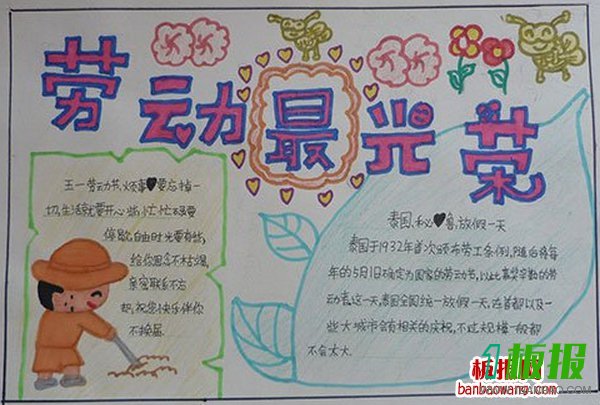 劳动最光荣
五一劳动节,烦事要忘掉一
切,生活就要开心些,忙忙碌碌要
停歇,自由时光要有些,
给你思念不枯竭,
亲密联系不方
却,祝您快乐伴你
不换届.
泰国、秘鲁,放假一天
泰国于1932年首次颁布劳工条例,随后将每
年的5月1日确定为国家的劳动节,以此嘉奖辛勤的劳
动者.这一天,泰国全国统一放假一天,在首都以及一
些大城市会有相关的庆祝,不过规模一般都
不会太大.
板报网
banbaowang.com
板报